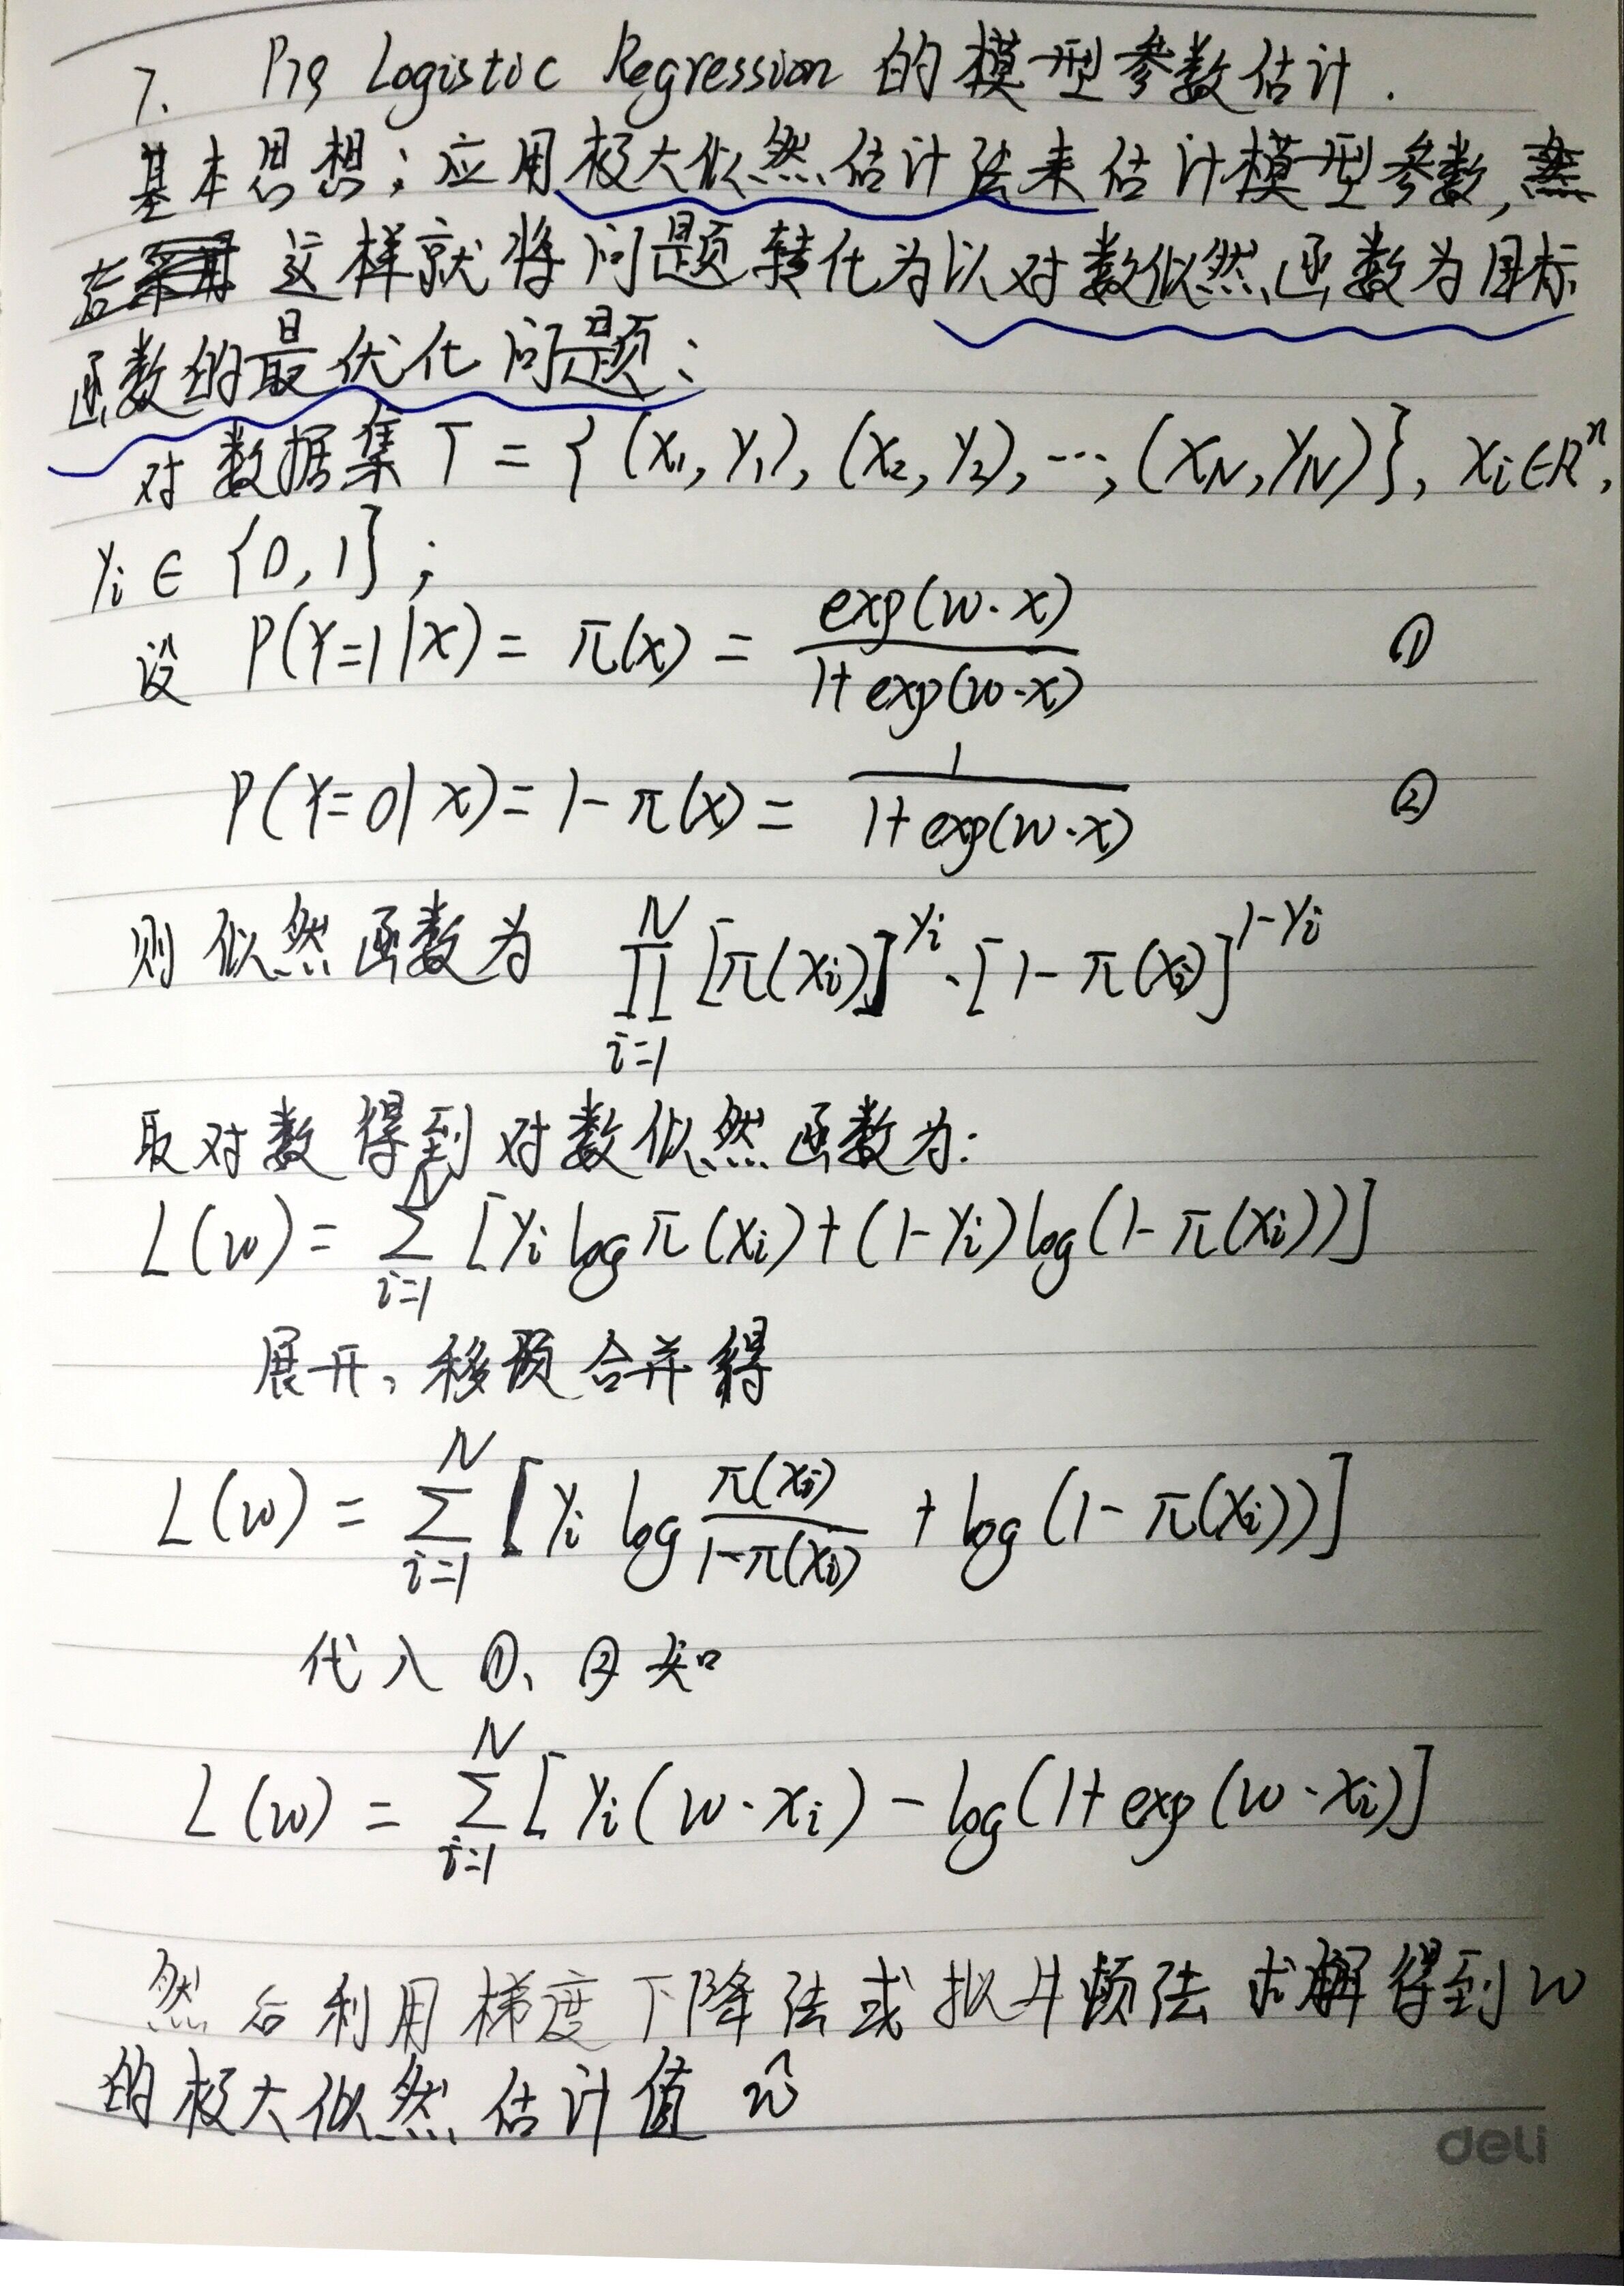 7. P79 Logistic Regression 的模型参数估计.
基本思想: 应用极大似然估计法来估计模型参数,
这样就将问题转化为以对数似然函数为目标
函数的最优化问题:
对数据集 T = {(x₁, y₁), (x₂, y₂), ⋯, (x_N, y_N)}, x_i ∈ Rⁿ,
y_i ∈ {0, 1};
设 P(Y=1|x) = π(x) = exp(w·x) / (1+exp(w·x)) ①
P(Y=0|x) = 1-π(x) = 1 / (1+exp(w·x)) ②
则似然函数为 ∏_{i=1}^{N} [π(x_i)]^{y_i}·[1-π(x_i)]^{1-y_i}
取对数得到对数似然函数为:
L(w) = ∑_{i=1}^{N} [y_i log π(x_i) + (1-y_i) log(1-π(x_i))]
展开、移项合并得
L(w) = ∑_{i=1}^{N} [y_i log π(x_i)/(1-π(x_i)) + log(1-π(x_i))]
代入①、②知
L(w) = ∑_{i=1}^{N} [y_i(w·x_i) - log(1+exp(w·x_i)]
然后利用梯度下降法或拟牛顿法求解得到w
的极大似然估计值 ŵ
deli